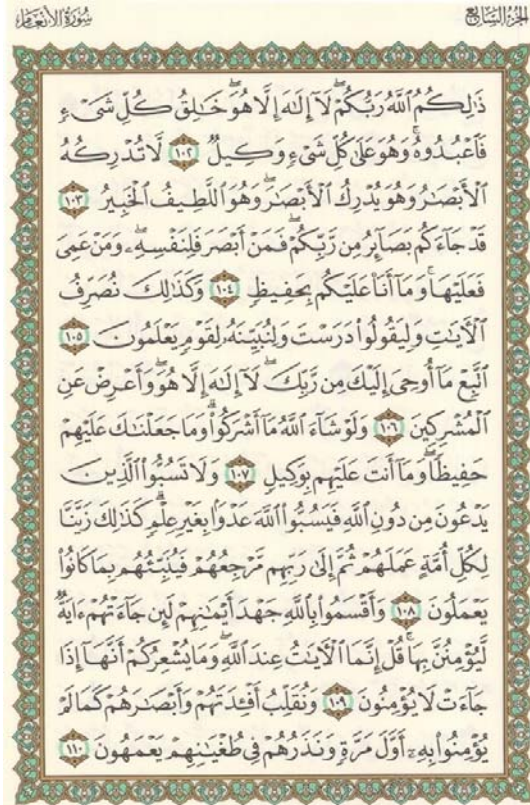 الجزء السابع
سورة الأنعام
ذَٰلِكُمُ ٱللَّهُ رَبُّكُمْ ۖ لَآ إِلَٰهَ إِلَّا هُوَ ۖ خَٰلِقُ كُلِّ شَىْءٍ
فَٱعْبُدُوهُ ۚ وَهُوَ عَلَىٰ كُلِّ شَىْءٍ وَكِيلٌ ١٠٢ لَّا تُدْرِكُهُ
ٱلْأَبْصَٰرُ وَهُوَ يُدْرِكُ ٱلْأَبْصَٰرَ ۖ وَهُوَ ٱللَّطِيفُ ٱلْخَبِيرُ ١٠٣
قَدْ جَآءَكُم بَصَآئِرُ مِن رَّبِّكُمْ ۖ فَمَنْ أَبْصَرَ فَلِنَفْسِهِۦ ۖ وَمَنْ عَمِىَ
فَعَلَيْهَا ۚ وَمَآ أَنَا۠ عَلَيْكُم بِحَفِيظٍ ١٠٤ وَكَذَٰلِكَ نُصَرِّفُ
ٱلْأَيَٰتِ وَلِيَقُولُوا۟ دَرَسْتَ وَلِنُبَيِّنَهُۥ لِقَوْمٍ يَعْلَمُونَ ١٠٥
ٱتَّبِعْ مَآ أُوحِىَ إِلَيْكَ مِن رَّبِّكَ ۖ لَآ إِلَٰهَ إِلَّا هُوَ ۖ وَأَعْرِضْ عَنِ
ٱلْمُشْرِكِينَ ١٠٦ وَلَوْ شَآءَ ٱللَّهُ مَآ أَشْرَكُوا۟ ۗ وَمَا جَعَلْنَٰكَ عَلَيْهِمْ
حَفِيظًا ۖ وَمَآ أَنتَ عَلَيْهِم بِوَكِيلٍ ١٠٧ وَلَا تَسُبُّوا۟ ٱلَّذِينَ
يَدْعُونَ مِن دُونِ ٱللَّهِ فَيَسُبُّوا۟ ٱللَّهَ عَدْوًۢا بِغَيْرِ عِلْمٍ ۗ كَذَٰلِكَ زَيَّنَّا
لِكُلِّ أُمَّةٍ عَمَلَهُمْ ثُمَّ إِلَىٰ رَبِّهِم مَّرْجِعُهُمْ فَيُنَبِّئُهُم بِمَا كَانُوا۟
يَعْمَلُونَ ١٠٨ وَأَقْسَمُوا۟ بِٱللَّهِ جَهْدَ أَيْمَٰنِهِمْ لَئِن جَآءَتْهُمْ ءَايَةٌ
لَّيُؤْمِنُنَّ بِهَا ۚ قُلْ إِنَّمَا ٱلْأَيَٰتُ عِندَ ٱللَّهِ ۖ وَمَا يُشْعِرُكُمْ أَنَّهَآ إِذَا
جَآءَتْ لَا يُؤْمِنُونَ ١٠٩ وَنُقَلِّبُ أَفْـِٔدَتَهُمْ وَأَبْصَٰرَهُمْ كَمَا لَمْ
يُؤْمِنُوا۟ بِهِۦٓ أَوَّلَ مَرَّةٍ وَنَذَرُهُمْ فِى طُغْيَٰنِهِمْ يَعْمَهُونَ ١١٠